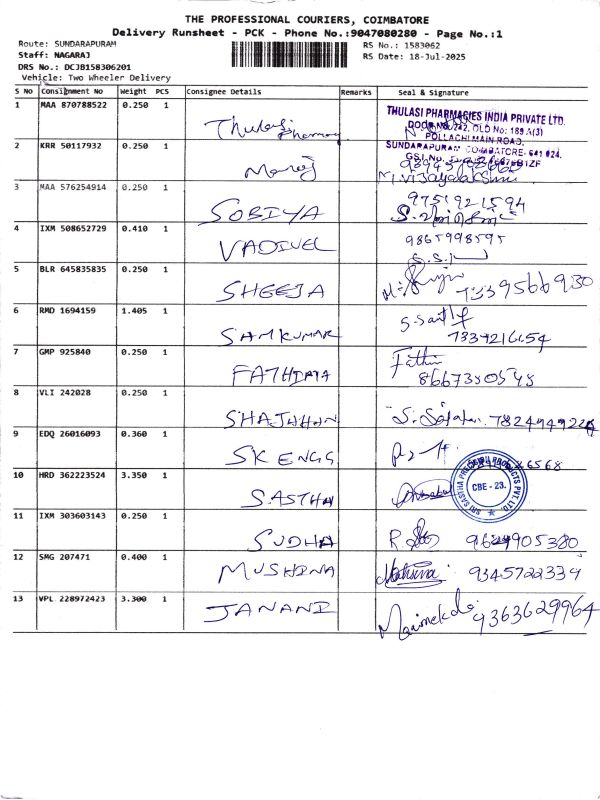 THE PROFESSIONAL COURIERS, COIMBATORE
Delivery Runsheet - PCK - Phone No.:9047080280 - Page No.:1
Route: SUNDARAPURAM
Staff: NAGARAJ
DRS No.: DCJB158306201
Vehicle: Two Wheeler Delivery
RS No.: 1583062
RS Date: 18-Jul-2025
S No Consignment No Weight PCS Consignee Details Remarks Seal & Signature
1 MAA 870788522 0.250 1 Thulasi Pharmacy
THULASI PHARMACIES INDIA PRIVATE LTD.
DOOR NO.242, OLD No: 189 A(3)
POLLACHI MAIN ROAD,
SUNDARAPURAM COIMBATORE- 641 024.
2 KRR 50117932 0.250 1 Manoj M. Vijayalakshmi
3 MAA 576254914 0.250 1 SOBIYA 9751921594
4 IXM 508652729 0.410 1 VADIVEL 9865998595
5 BLR 645835835 0.250 1 SHEEJA 7339566930
6 RMD 1694159 1.405 1 SAMKUMAR 7339216654
7 GMP 925840 0.250 1 FATHIMA 8667380548
8 VLI 242028 0.250 1 SHAJAHAN
9 EDQ 26016093 0.360 1 SK ENGG
10 HRD 362223524 3.350 1 SASTHA
SRI SASTHA PRECISION PRODUCTS PVT LTD.
CBE - 23.
11 IXM 303603143 0.250 1 SUDHA
12 SMG 207471 0.400 1 MUSHINA 9345722334
13 VPL 228972423 3.300 1 JANANI 9363629964